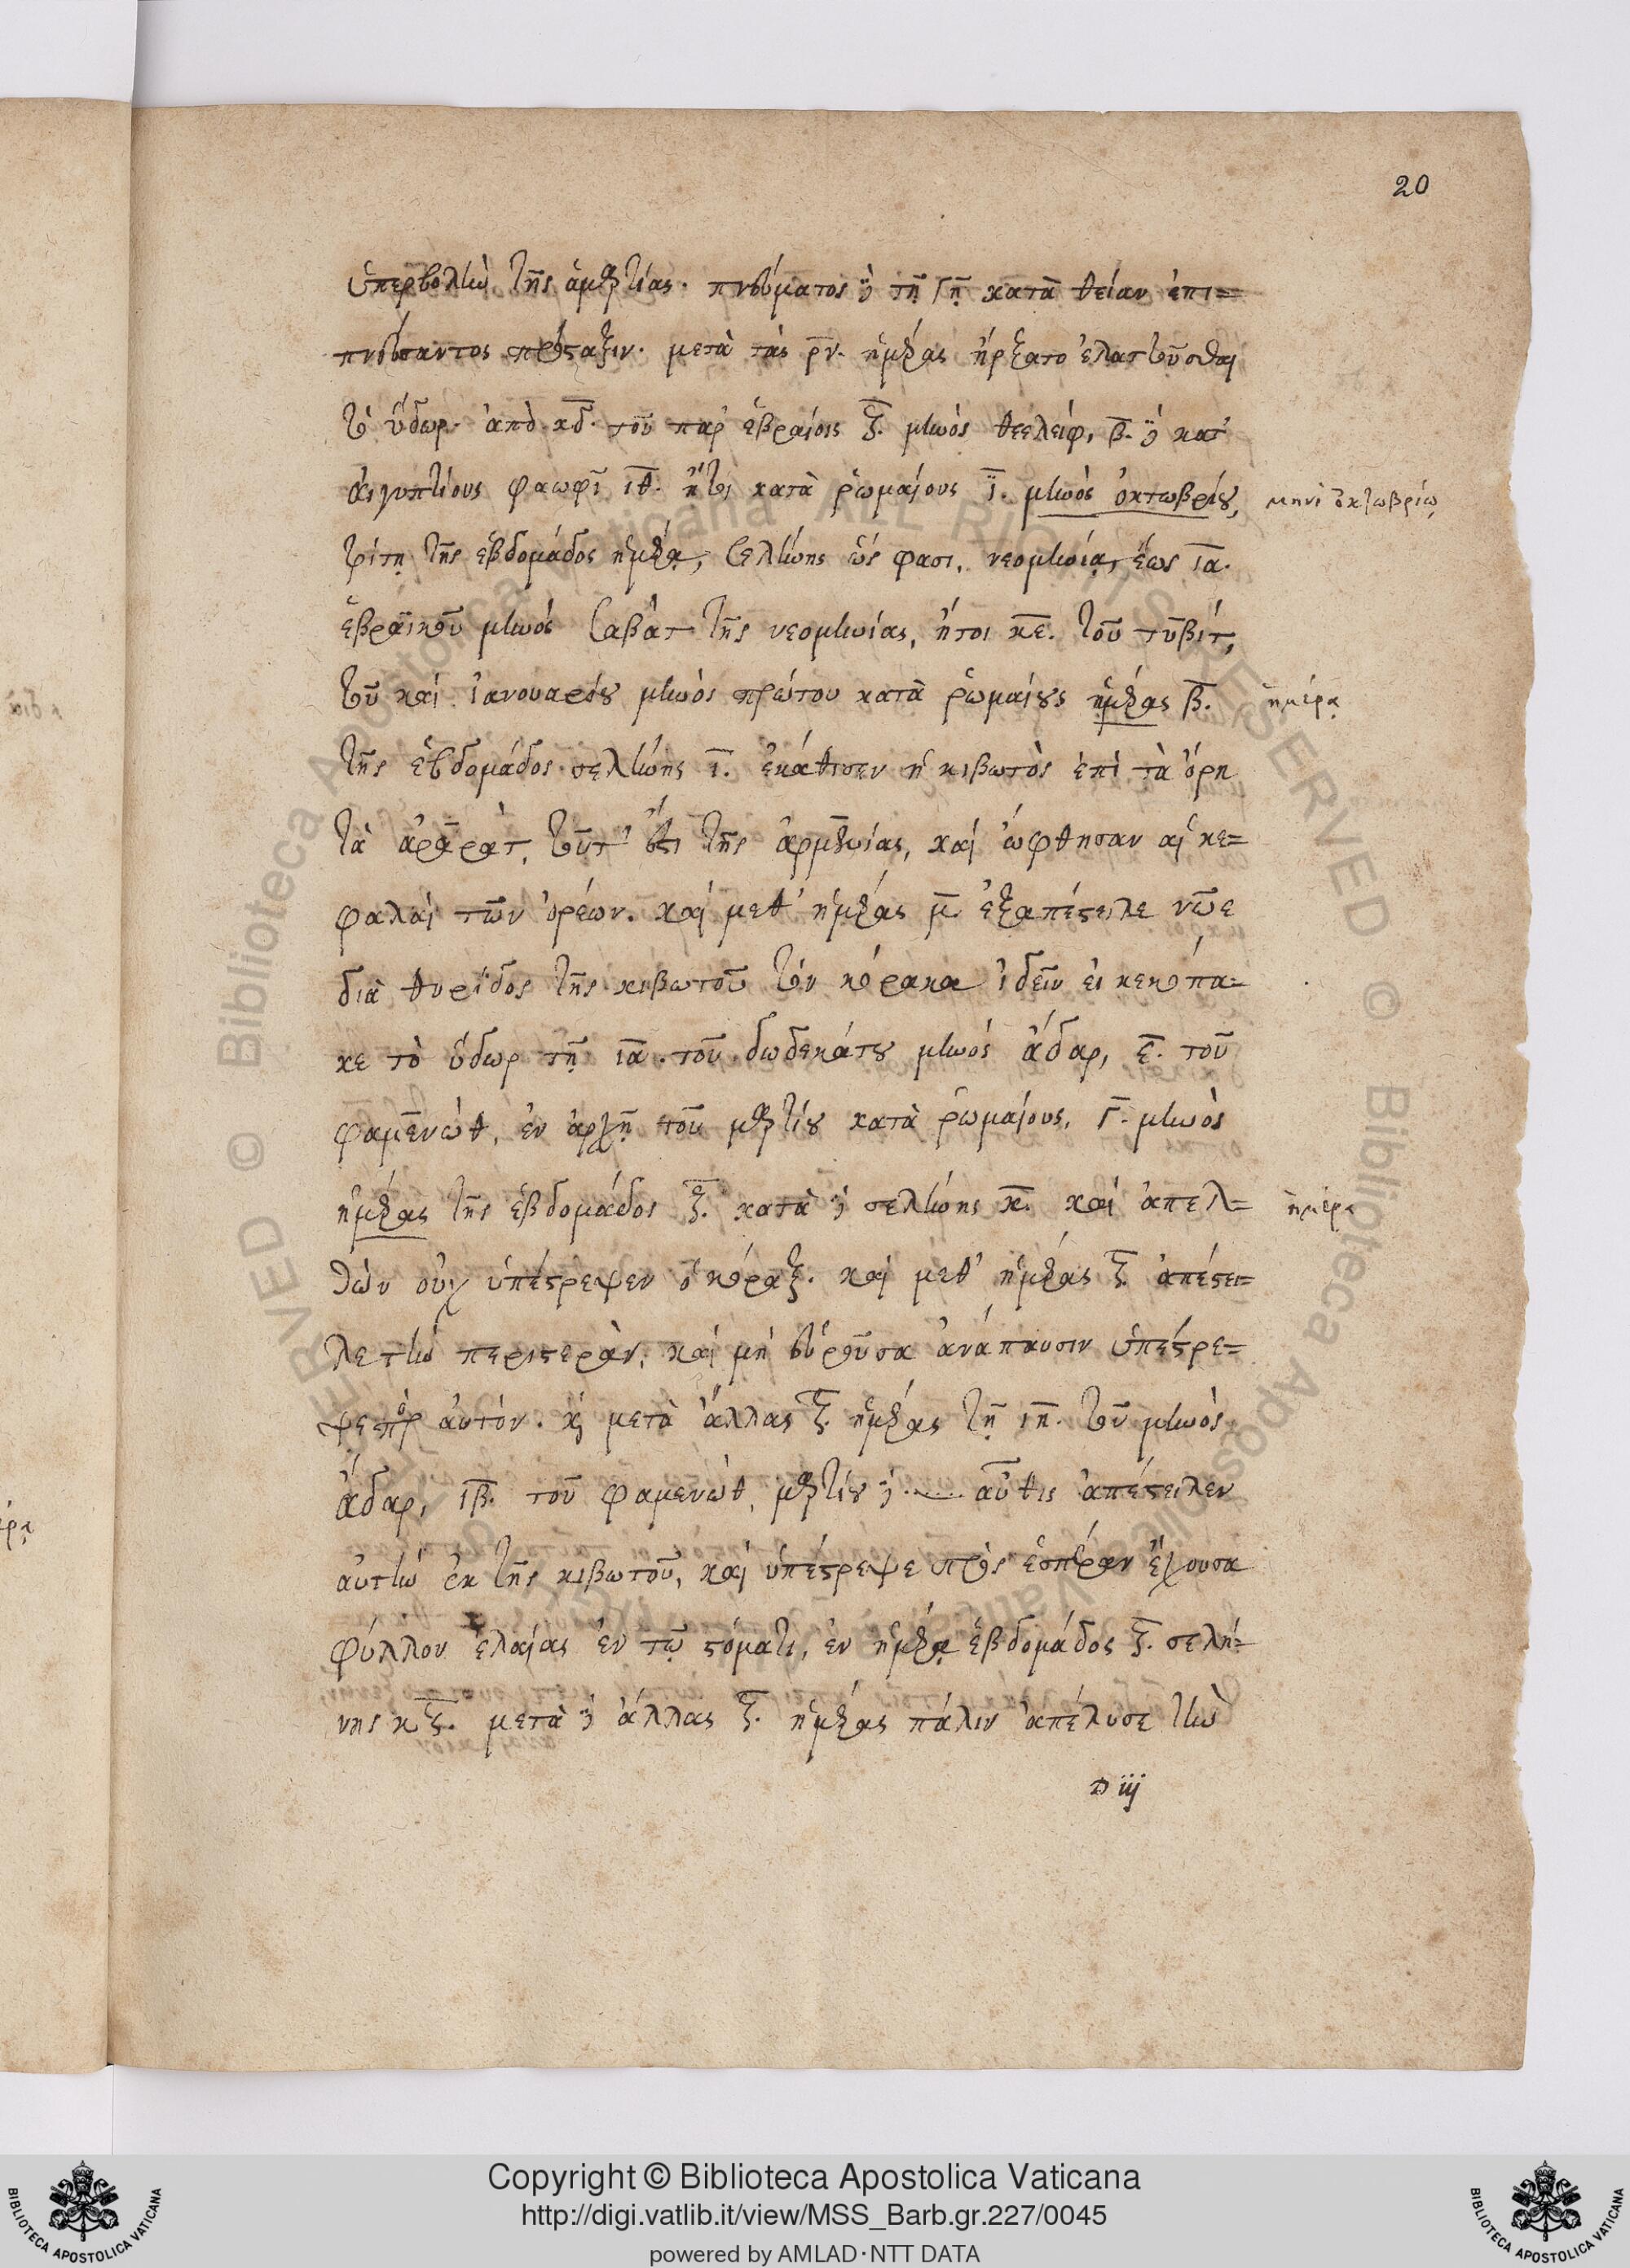 20
ὑπερβολὴν τῆς ἁμαρτίας. πνεύματος δὲ τῇ γῇ κατὰ θείαν ἐπι=
πνεύσαντος πρόσταξιν. μετὰ τὰς ρν. ἡμέρας ἤρξατο ἐλαττοῦσθαι
τὸ ὕδωρ. ἀπὸ κδ. τοῦ παρ' ἑβραίοις ζ. μηνὸς θεελείφ, β. δὲ κατ'
αἰγυπτίους φαωφὶ ιθ. ἤτοι κατὰ ῥωμαίους ϊ. μηνὸς ὀκτωβρίου,
μηνὶ ὀκτωβρίῳ
τρίτῃ τῆς ἑβδομάδος ἡμέρᾳ, σελήνης ὥς φασι, νεομηνίᾳ, ἕως ια.
ἑβραϊκοῦ μηνὸς σαβὰτ τῆς νεομηνίας, ἤτοι κε. τοῦ τυβίτ,
τοῦ καὶ ἰανουαρίου μηνὸς πρώτου κατὰ ῥωμαίους ἡμέρας β.
ἡμέρᾳ
τῆς ἑβδομάδος σελήνης ι. ἐκάθισεν ἡ κιβωτὸς ἐπὶ τὰ ὄρη
τὰ ἀραρὰτ, τοῦτ' ἔστι τῆς ἀρμενίας, καὶ ὤφθησαν αἱ κε=
φαλαὶ τῶν ὀρέων. καὶ μεθ' ἡμέρας μ. ἐξαπέστειλε νῶε
διὰ θυρίδος τῆς κιβωτοῦ τὸν κόρακα ἰδεῖν εἰ κεκόπα=
κε τὸ ὕδωρ τῇ ια. τοῦ δωδεκάτου μηνὸς ἄδαρ, ε. τοῦ
φαμενὼθ, ἐν ἀρχῇ τοῦ μαρτίου κατὰ ῥωμαίους, γ. μηνὸς
ἡμέρας τῆς ἑβδομάδος ζ. κατὰ δὲ σελήνης κ. καὶ ἀπελ=
ἡμέρᾳ
θὼν οὐχ ὑπέστρεψεν ὁ κόραξ. καὶ μεθ' ἡμέρας ζ. ἀπέστει=
λε τὴν περιστερὰν, καὶ μὴ εὑροῦσα ἀνάπαυσιν ὑπέστρε=
ψε πρὸς αὐτόν. καὶ μετὰ ἄλλας ζ. ἡμέρας τῇ ιη. τοῦ μηνὸς
ἄδαρ, ιβ. τοῦ φαμενὼθ, μαρτίου δὲ. αὖθις ἀπέστειλεν
αὐτὴν ἐκ τῆς κιβωτοῦ, καὶ ὑπέστρεψε πρὸς ἑσπέραν ἔχουσα
φύλλον ἐλαίας ἐν τῷ στόματι, ἐν ἡμέρᾳ ἑβδομάδος ζ. σελή=
νης κζ. μετὰ δὲ ἄλλας ζ. ἡμέρας πάλιν ἀπέλυσε τὴν
D iij
Copyright © Biblioteca Apostolica Vaticana
http://digi.vatlib.it/view/MSS_Barb.gr.227/0045
powered by AMLAD·NTT DATA
BIBLIOTECA APOSTOLICA VATICANA
BIBLIOTECA APOSTOLICA VATICANA